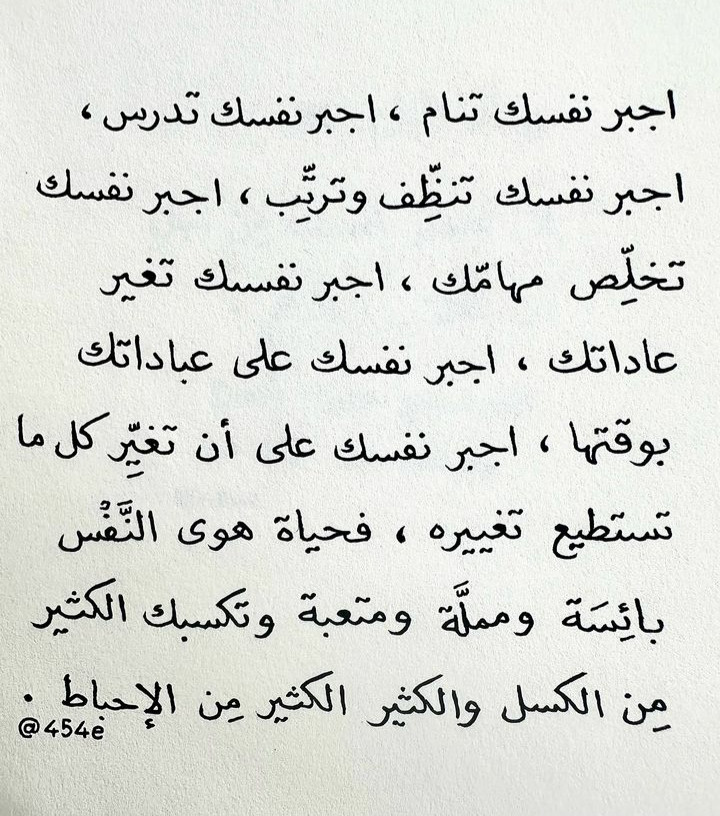 اجبر نفسك تنام ، اجبر نفسك تدرس ،
اجبر نفسك تنظِّف وترتِّب ، اجبر نفسك
تخلِّص مهامّك ، اجبر نفسك تغير
عاداتك ، اجبر نفسك على عباداتك
بوقتها ، اجبر نفسك على أن تغيِّر كل ما
تستطيع تغييره ، فحياة هوى النَّفْس
بائِسَة ومملَّة ومتعبة وتكسبك الكثير
مِن الكسل والكثير الكثير مِن الإحباط .
@454e